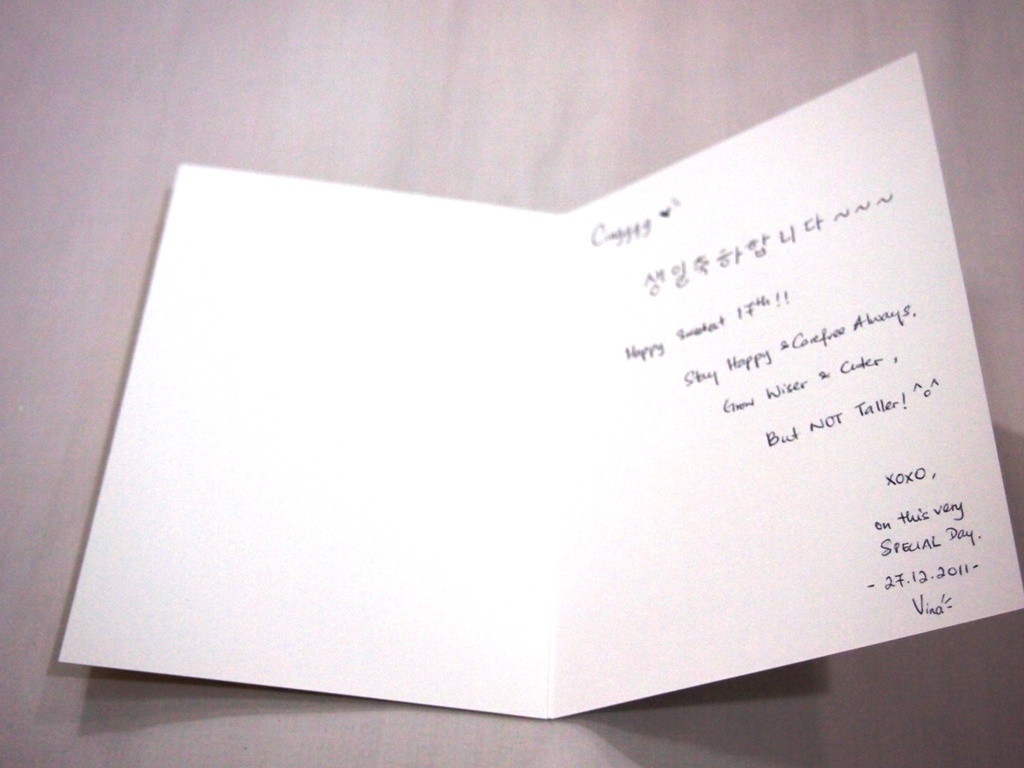 생일축하합니다~~~
Happy Sweetest 17th!!
Stay Happy & Carefree Always,
Grow Wiser & Cuter,
But NOT Taller! ^o^
XOXO,
on this very
SPECIAL Day.
- 27.12.2011 -
Vina